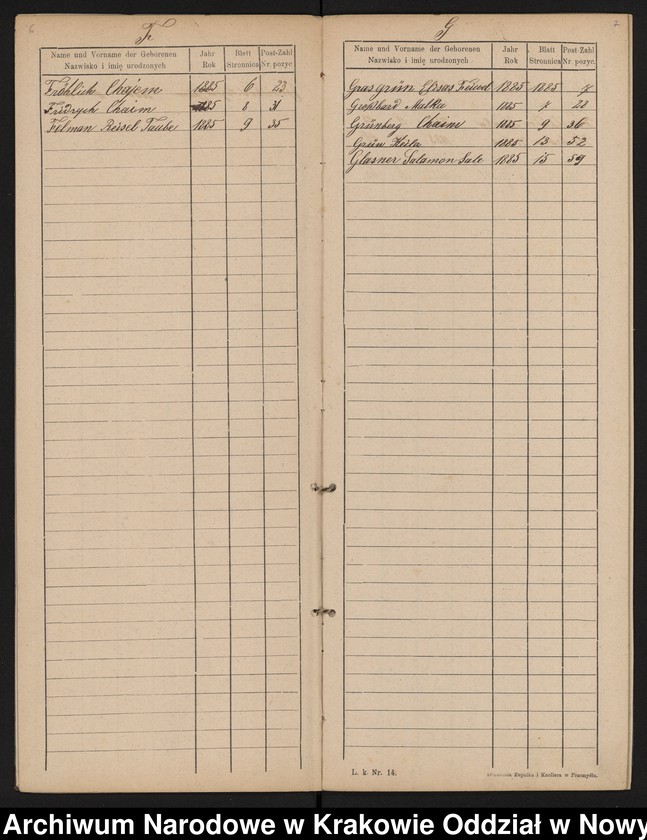 6
F
Name und Vorname der Geborenen Jahr Blatt Post-Zahl
Nazwisko i imię urodzonych Rok Stronnica Nr. pozyc.
Fröhlich Chajem 1885 6 23
Fridrych Chaim 1885 8 31
Felman Reisel Taube 1885 9 35
7
G
Name und Vorname der Geborenen Jahr Blatt Post-Zahl
Nazwisko i imię urodzonych Rok Stronnica Nr. pozyc.
Grasgrün 1885 1885 7
Malka 1885 7 28
Grünberg Chaim 1885 9 36
Grün 1885 13 52
Glasner Salamon Sale 1885 15 59
L. k. Nr. 14.
Zupnika i Knollera w Przemyślu.
Archiwum Narodowe w Krakowie Oddział w Nowy